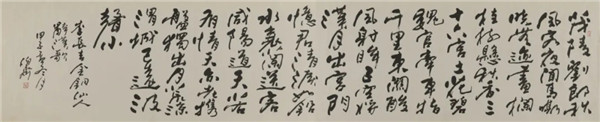 茂陵劉郎秋
風客夜聞馬嘶
曉無跡畫欄
桂樹懸秋香三
十六宮土花碧
魏官牽車指
千里東關酸
風射眸子空將
漢月出宮門
憶君清淚如鉛
水衰蘭送客
咸陽道天若
有情天亦老攜
盤獨出月荒涼
渭城已遠波
聲小
李長吉金銅仙人
辭漢歌
甲子年冬月